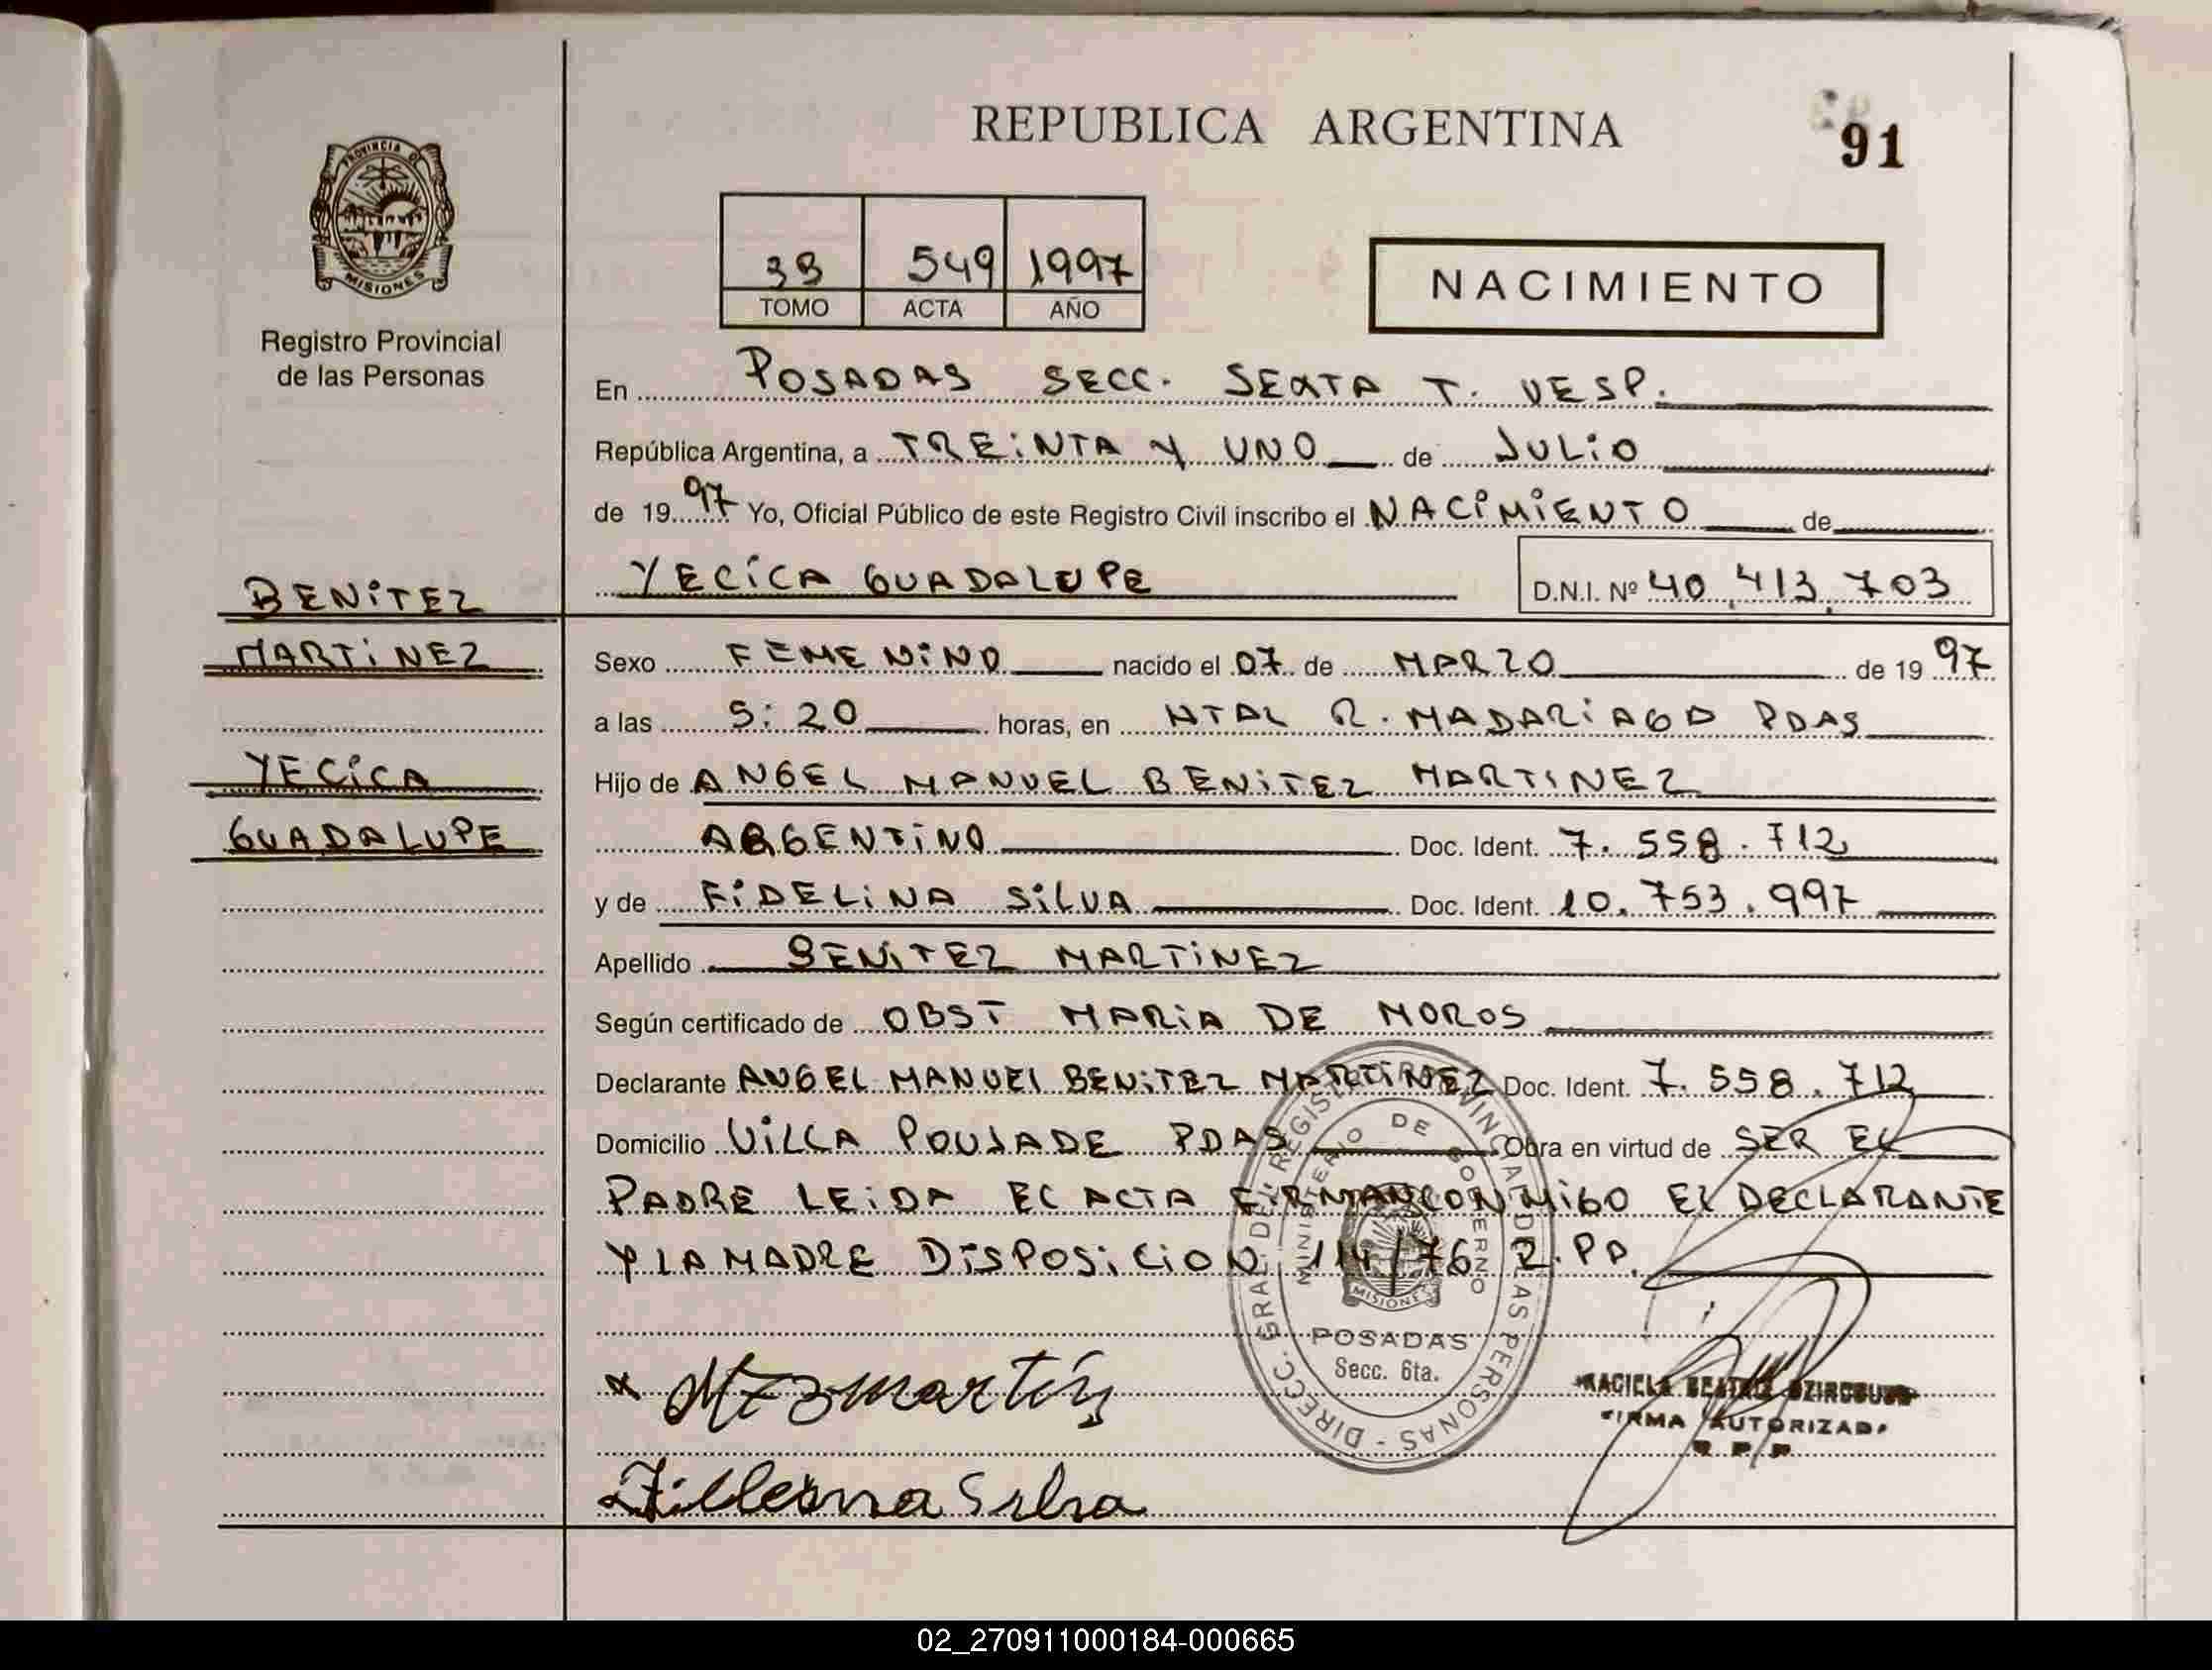 REPUBLICA ARGENTINA
91
PROVINCIA DE
MISIONES
Registro Provincial
de las Personas
549 1997
TOMO ACTA AÑO
NACIMIENTO
En POSADAS SECC. SEXTA T. VESP.
República Argentina, a TREINTA Y UNO de JULIO
de 1997 Yo, Oficial Público de este Registro Civil inscribo el NACIMIENTO de
YECICA GUADALUPE D.N.I. Nº 40.413.703
BENITEZ
MARTINEZ
YECICA
GUADALUPE
Sexo FEMENINO nacido el 07 de MARZO de 1997
a las 5:20 horas, en HTAL R. MADARIAGA PDAS
Hijo de ANGEL MANUEL BENITEZ MARTINEZ
ARGENTINO Doc. Ident. 7.558.712
y de FIDELINA SILVA Doc. Ident. 10.753.997
Apellido BENITEZ MARTINEZ
Según certificado de OBST MARIA DE MOROS
Declarante ANGEL MANUEL BENITEZ MARTINEZ Doc. Ident. 7.558.712
Domicilio VILLA POUJADE PDAS Obra en virtud de SER EL
PADRE LEIDA EL ACTA FIRMAN CONMIGO EL DECLARANTE
Y LA MADRE DISPOSICION 114/76 R.PP.
DIRECC. GRAL. DEL REGISTRO PROVINCIAL DE LAS PERSONAS
MINISTERIO DE GOBIERNO
MISIONES
POSADAS
Secc. 6ta.
BEATRIZ
FIRMA AUTORIZADA
R P P
Silva
02_270911000184-000665